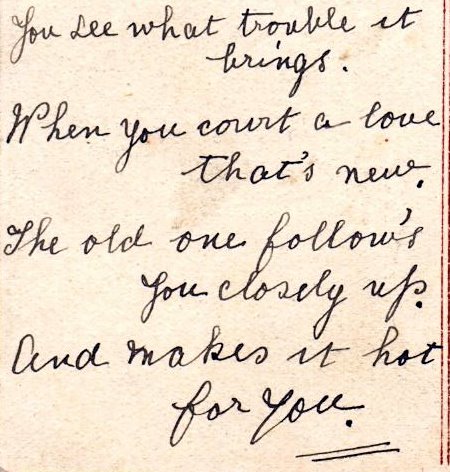 You see what trouble it
brings.
When you court a love
that's new.
The old one follow's
you closely up.
And makes it hot
for you.